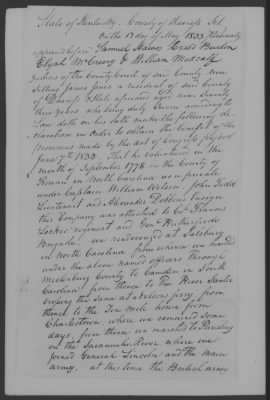 State of Kentucky. County of Daviess Sct.
On the 13 day of May 1833, Personally
appeared before Samuel Haws Creed Burton
Elijah McCreery & William Metcalf
Justices of the County Court of said County now
Sitting James Jones a resident of said County
of Daviess & State aforesaid aged some Seventy
three years who being duly sworn according to
Law doth on his oath make the following de-
claration in Order to obtain the benefit of the
provisions made by the act of Congress passed
June 7th 1832. That he volunteered in the
Month of September 1778 in the County of
Rowan in North Carolina as a private
under Captain William Wilson, John Todd
Lieutenant and Alexander Dobbins Ensign
this Company was attached to Col Francis
Lockes regiment and Genl Rutherfords
Brigade, we rendezvoused at Salsbury
in North Carolina from whence we march
under the above named officers through
Mclenburg County to Camden in South
Carolina from thence to the River Santee
Crossing the Same at Nelsons ferry from
thence to the Ten Mile house from
Charlestown, where we remained some
days, from thence we marched to Purisburg
on the Savannah River where we
joined General Lincoln and the Main
army. at the time the British army